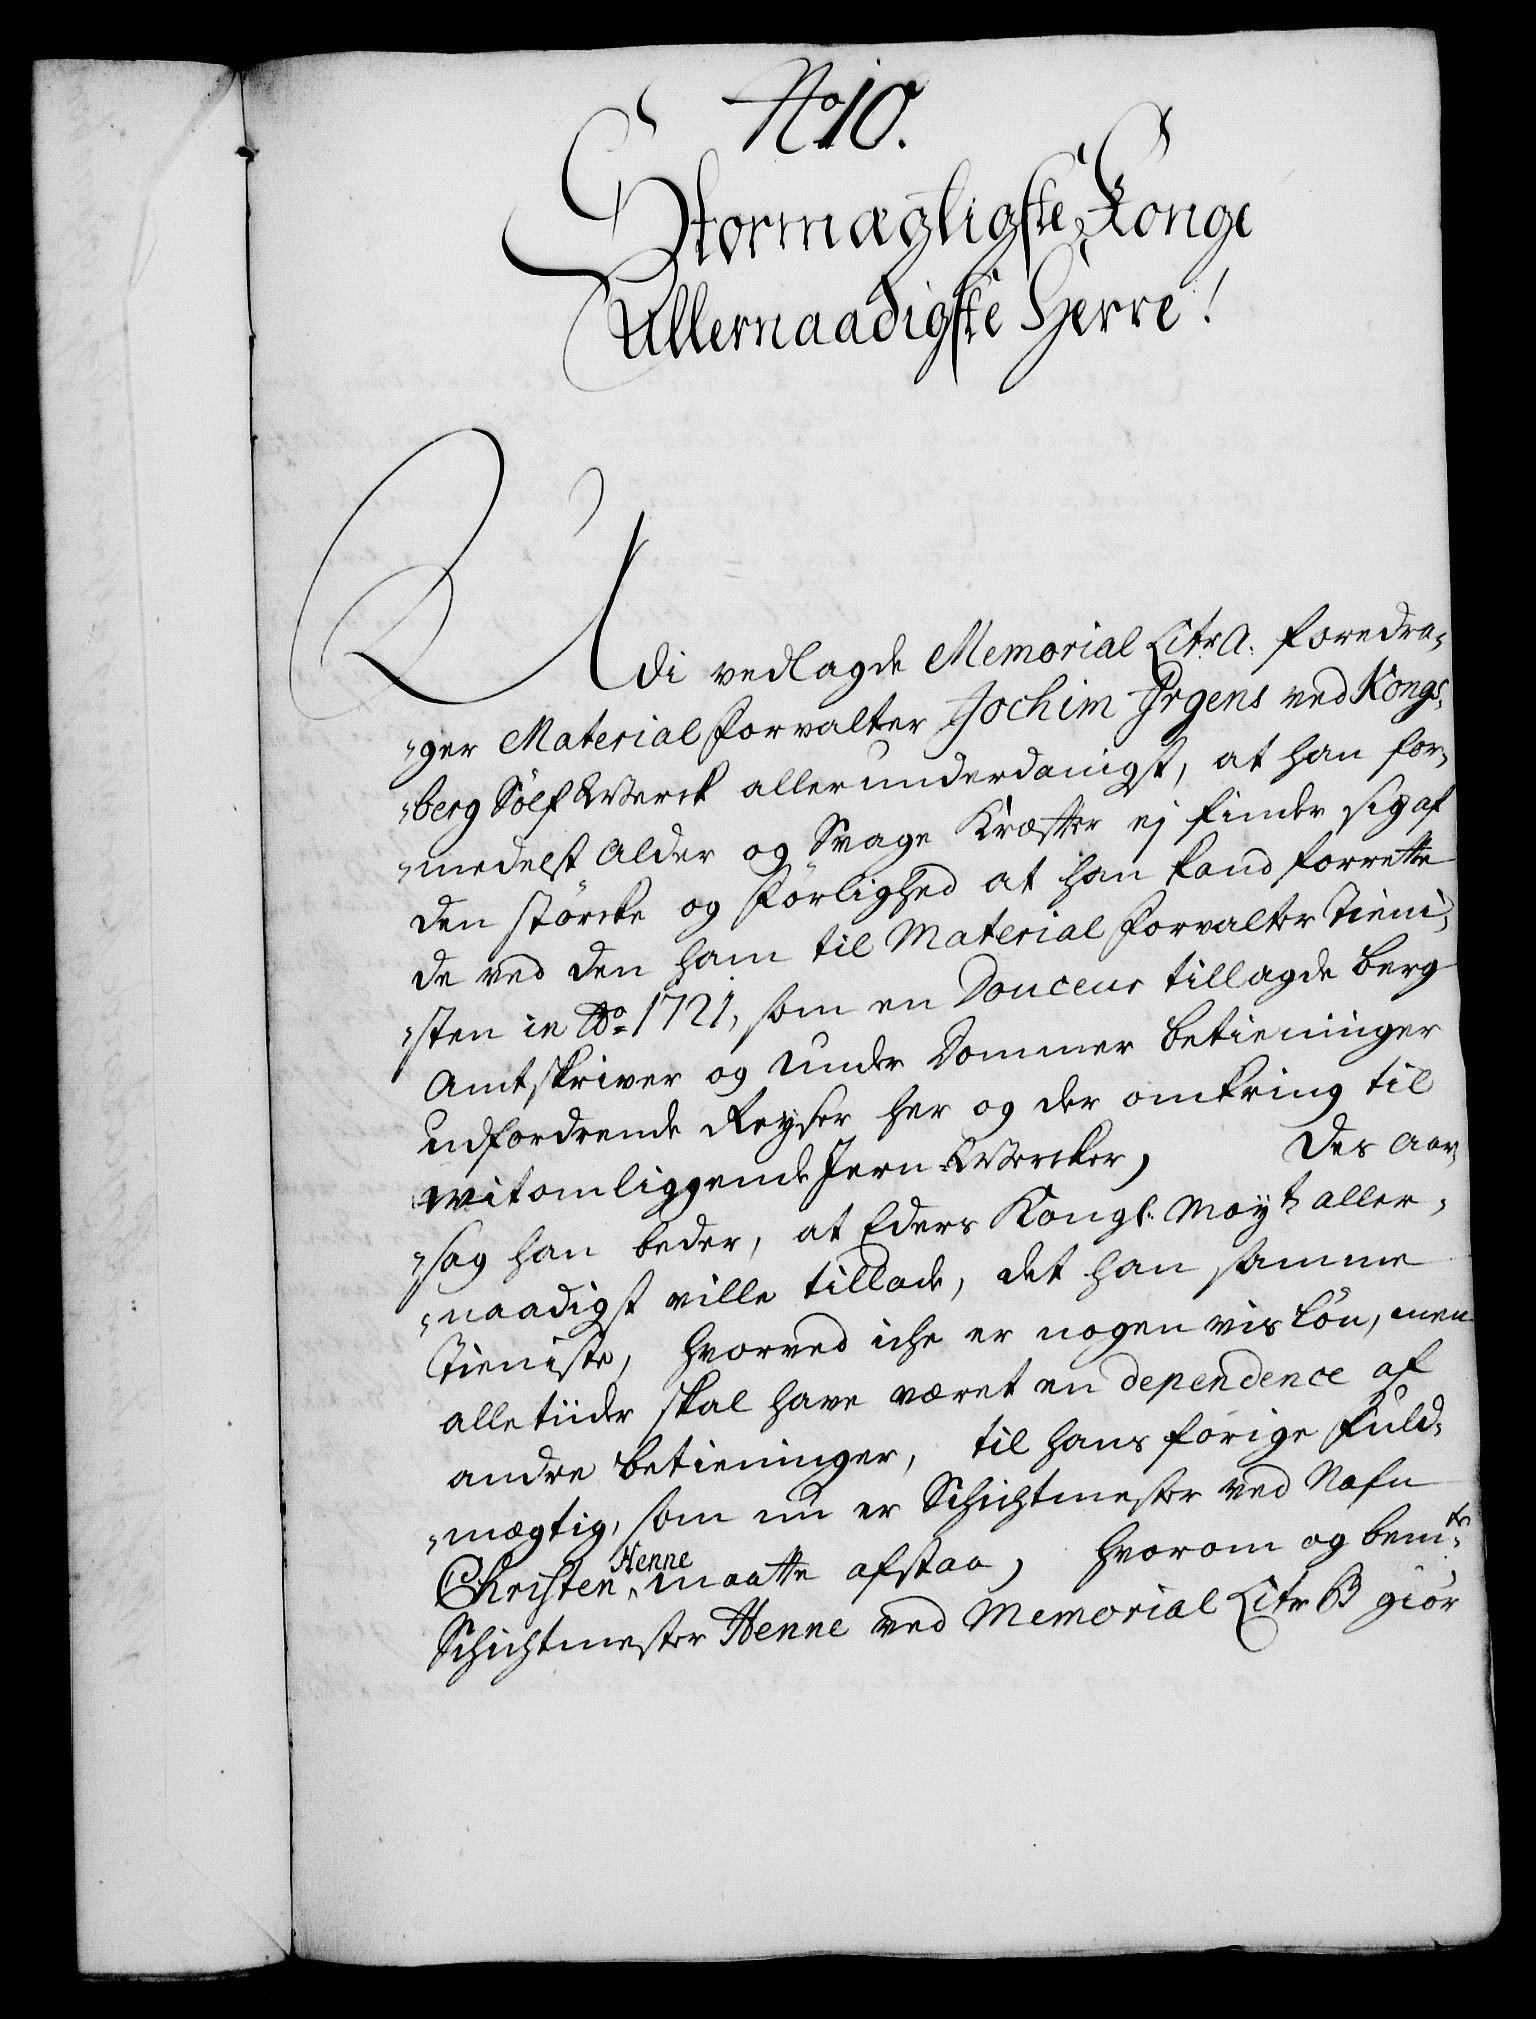 No 10.
Stormægtigste Konge
Allernaadigste Herre!
Udi vedlagde Memorial Litr A. foredra-
-ger Material forvalter Jochim Jrgens ved Kongs-
-berg Sölf Werck allerunderdanigst, at han for-
-medelst Alder og Svage Kræffter ej finder sig af
den störcke og förlighed at han kand forrette
de ved den ham til Material forvalter Tieni-
-sten in Ao 1721, som en Douceur tillagde berg
Amtskriver og under Dommer betieninger
udfordrende Reyser her og der omkring til
vitomliggende Jern-Wercker, Des aar-
-sag han beder, at Eders Kongl. Mayt aller-
-naadigst ville tillade, det han samme
Tieniste, hvorved iche er nogen vis Lön, men
alletiider skal have været en dependence af
andre betieninger, til hans forige fuld-
-mægtig, som nu er Schichtmester ved Nafn
Christen Henne maatte afstaa, hvorom og bemte
Schichtmester Henne ved Memorial Litr B giör